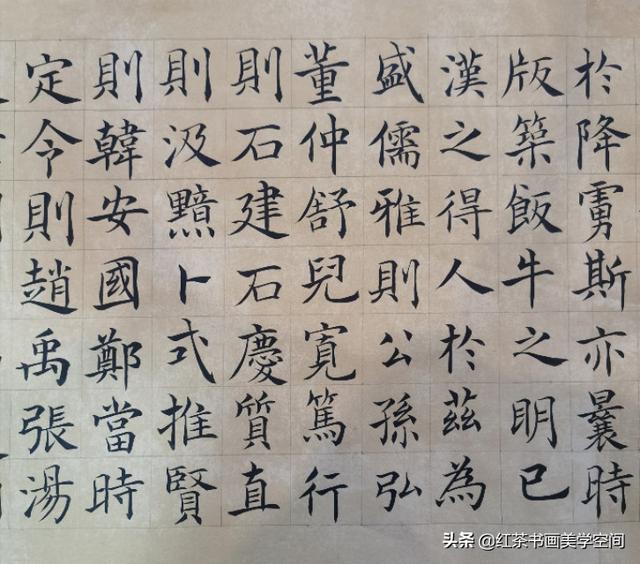 於降虜斯亦曩時
版築飯牛之明已
漢之得人於茲為
盛儒雅則公孫弘
董仲舒兒寬篤行
則石建石慶質直
則汲黯卜式推賢
則韓安國鄭當時
定令則趙禹張湯
头条 @红茶书画美学空间